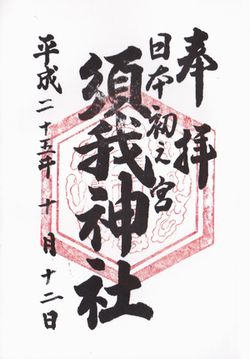 奉拝
日本初之宮
須我神社
平成二十三年十月十二日